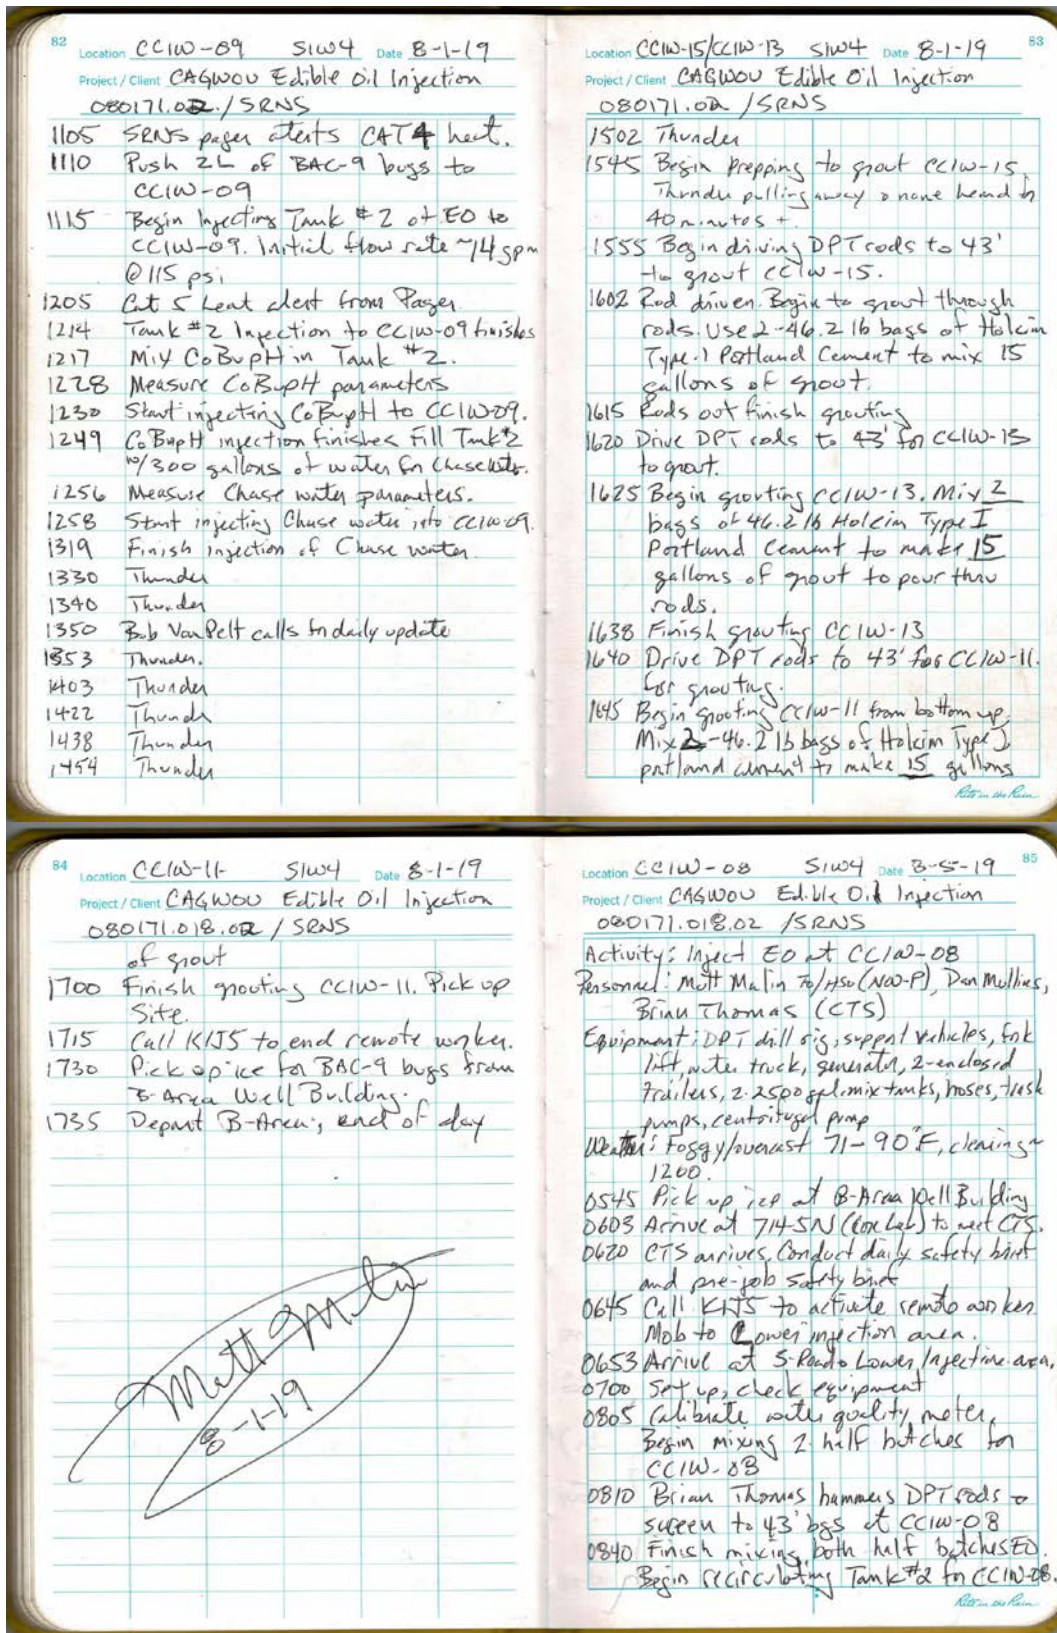 82
Location CCIW-09 SIW4 Date 8-1-19
Project / Client CAGWOU Edible Oil Injection
080171.02 / SRNS
1105 SRNS pager alerts CAT 4 heat.
1110 Push 2L of BAC-9 bugs to
CCIW-09
1115 Begin Injecting Tank #2 of EO to
CCIW-09. Initial flow rate ~14 gpm
@ 115 psi
1205 Cat 5 heat alert from Pager
1214 Tank #2 Injection to CCIW-09 finishes
1217 Mix CoBupH in Tank #2.
1228 Measure CoBupH parameters
1230 Start injecting CoBupH to CCIW-09.
1249 CoBupH injection finishes Fill Tank #2
w/300 gallons of water for Chase wtr.
1256 Measure Chase water parameters.
1258 Start injecting Chase water into CCIW-09.
1319 Finish injection of Chase water.
1330 Thunder
1340 Thunder
1350 Bob Van Pelt calls for daily update
1353 Thunder.
1403 Thunder
1422 Thunder
1438 Thunder
1454 Thunder
83
Location CCIW-15/CCIW-13 SIW4 Date 8-1-19
Project / Client CAGWOU Edible Oil Injection
080171.02 / SRNS
1502 Thunder
1545 Begin prepping to grout CCIW-15.
Thunder pulling away & none heard in
40 minutes +
1555 Begin driving DPT rods to 43'
to grout CCIW-15.
1602 Rod driven. Begin to grout through
rods. Use 2-46.2 lb bags of Holcim
Type 1 Portland Cement to mix 15
gallons of grout.
1615 Rods out finish grouting
1620 Drive DPT rods to 43' for CCIW-13
to grout.
1625 Begin grouting CCIW-13. Mix 2
bags of 46.2 lb Holcim Type I
Portland Cement to make 15
gallons of grout to pour thru
rods.
1638 Finish grouting CCIW-13
1640 Drive DPT rods to 43' for CCIW-11.
for grouting.
1645 Begin grouting CCIW-11 from bottom up.
Mix 2-46.2 lb bags of Holcim Type I
portland cement to make 15 gallons
Rite in the Rain
84
Location CCIW-11 SIW4 Date 8-1-19
Project / Client CAGWOU Edible Oil Injection
080171.018.02 / SRNS
of grout
1700 Finish grouting CCIW-11. Pick up
Site.
1715 Call KIJS to end remote worker.
1730 Pick up ice for BAC-9 bugs from
B-Area Well Building.
1735 Depart B-Area; end of day
8-1-19
85
Location CCIW-08 SIW4 Date 8-5-19
Project / Client CAGWOU Edible Oil Injection
080171.018.02 / SRNS
Activity: Inject EO at CCIW-08
Personnel: Matt Malin (NOO-P), Dan Mullins,
Brian Thomas (CTS)
Equipment: DPT drill rig, support vehicles, fork
lift, water truck, generator, 2-enclosed
trailers, 2-2500 gal. mix tanks, hoses, trash
pumps, centrifugal pump
Weather: Foggy/overcast 71-90°F, clearing ~
1200.
0545 Pick up ice at B-Area Well Building
0603 Arrive at 714-5N to meet CTS.
0620 CTS arrives. Conduct daily safety brief
and pre-job safety brief
0645 Call KIJS to activate remote worker.
Mob to Lower injection area.
0653 Arrive at S-Road & Lower Injection area.
0700 Set up, check equipment
0805 Calibrate water quality meter.
Begin mixing 2 half batches for
CCIW-08
0810 Brian Thomas hammers DPT rods &
screen to 43' bgs at CCIW-08
0840 Finish mixing both half batches EO.
Begin recirculating Tank #2 for CCIW-08.
Rite in the Rain